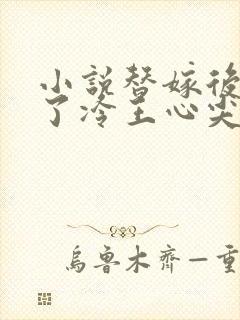 小説替嫁後
了冷王心尖
烏魯木齊—重